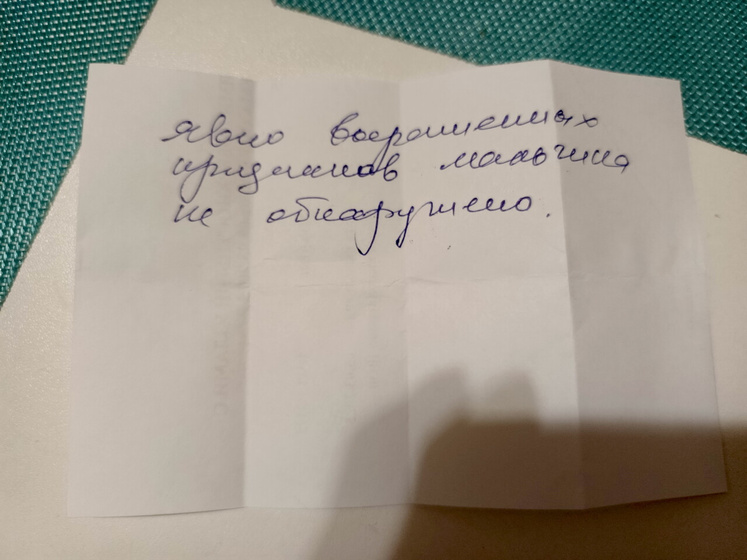 явно выраженных
признаков мальчика
не обнаружено.